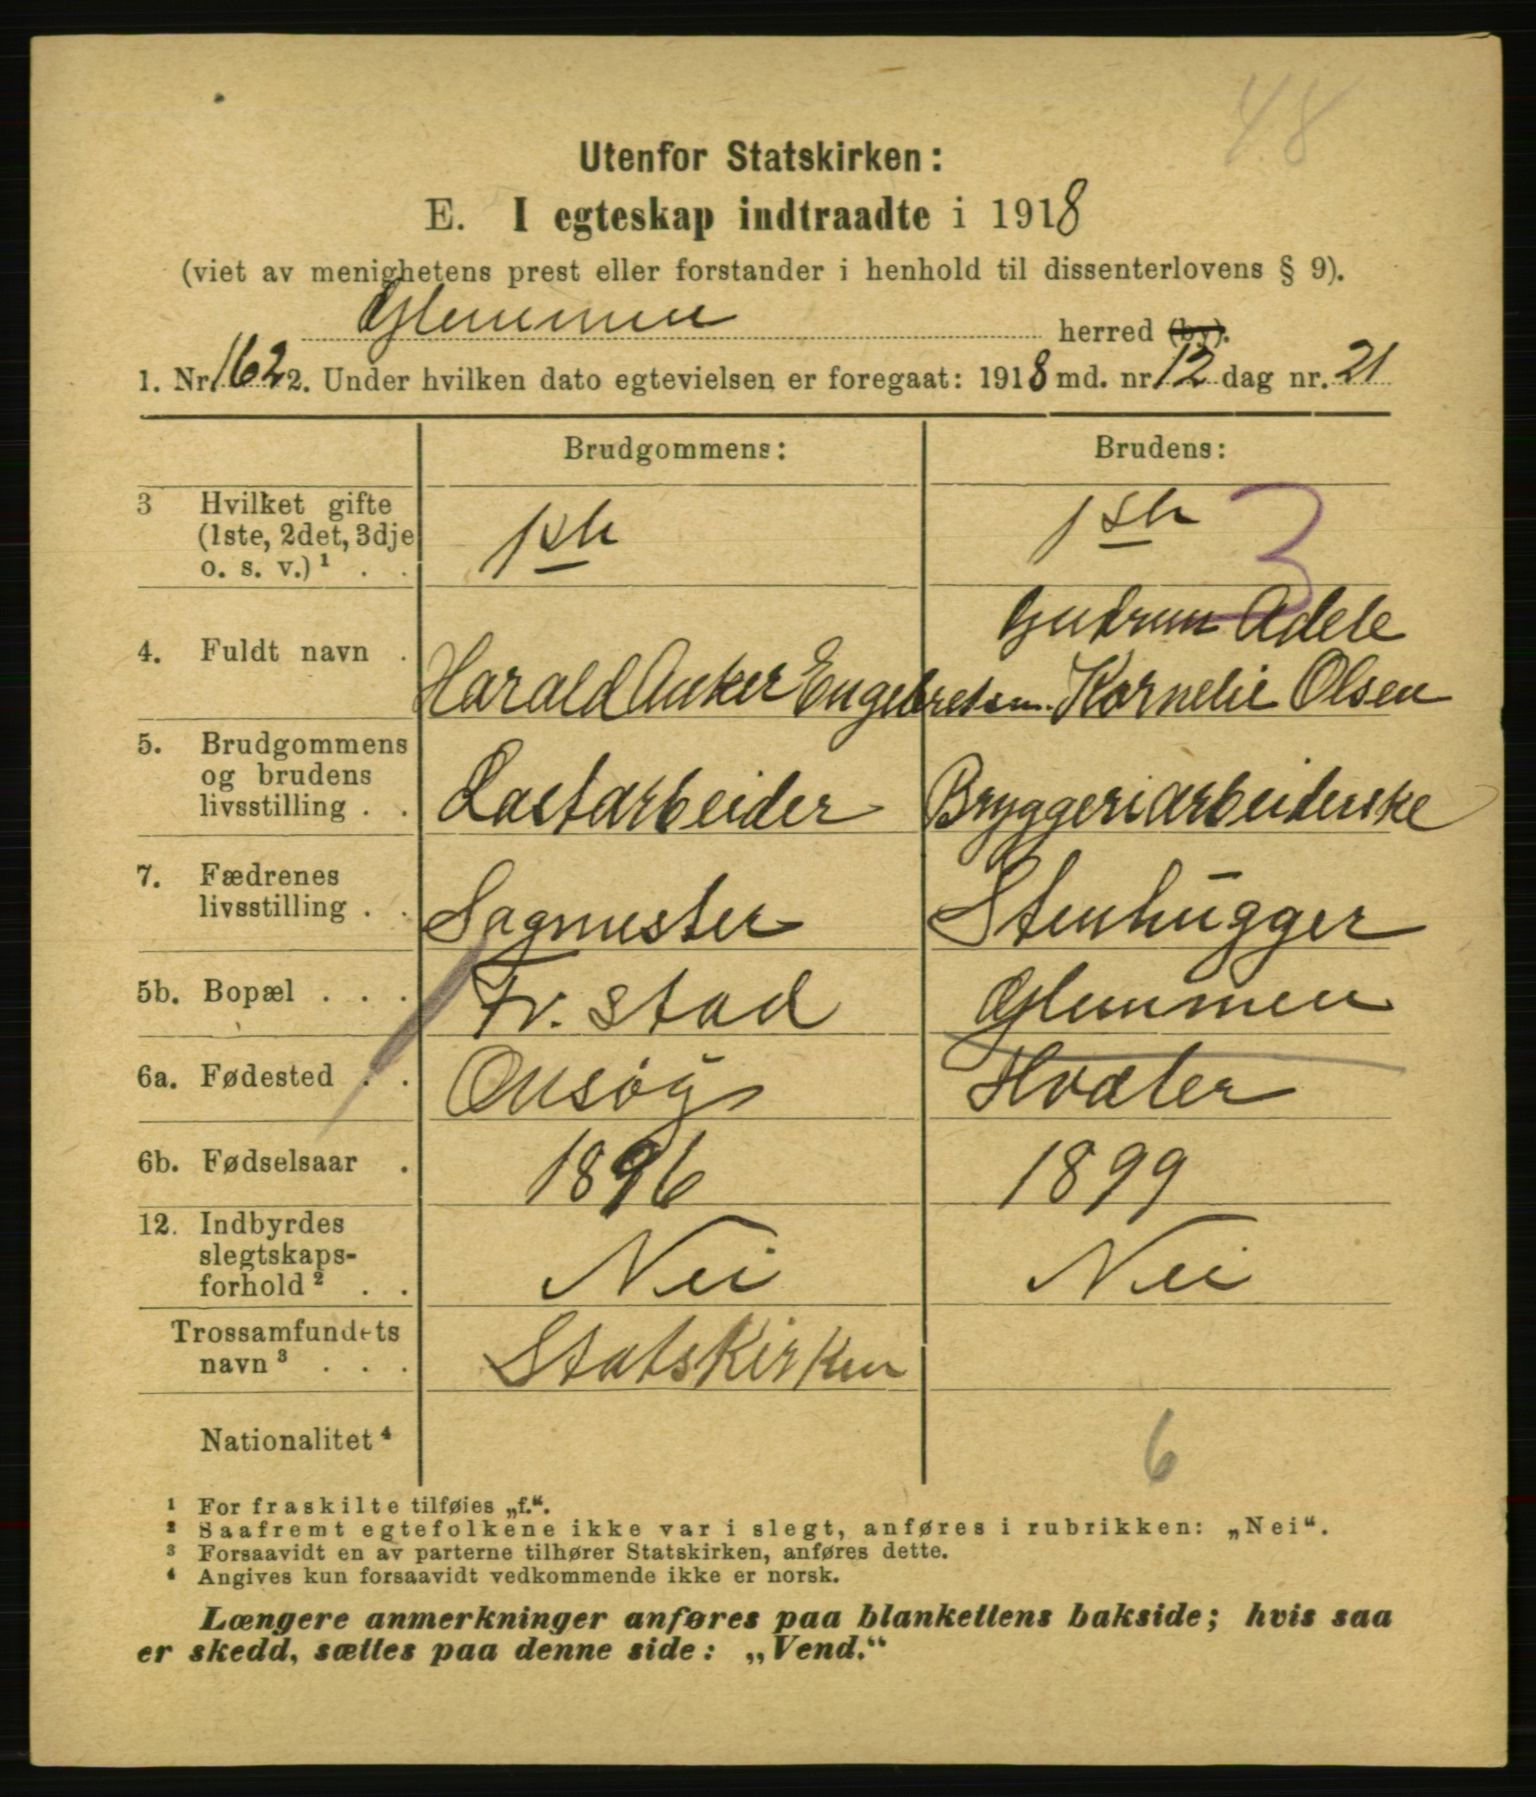 48
Utenfor Statskirken:
E. I egteskap indtraadte i 1918
(viet av menighetens prest eller forstander i henhold til dissenterlovens § 9).
Glemmen herred (by).
1. Nr. 162 2. Under hvilken dato egtevielsen er foregaat: 1918 md. nr. 12 dag nr. 21
Brudgommens: Brudens:
3 Hvilket gifte (1ste, 2det, 3dje o. s. v.) ¹ . .
1ste
1ste
3
4. Fuldt navn .
Harald Anker Engebretsen.
Gudrun Adele
Kornelie Olsen
5. Brudgommens
og brudens
livsstilling . .
Lastarbeider
Bryggeriarbeiderske
7. Fædrenes
livsstilling . .
Sagmester
Stenhugger
5b. Bopæl . . . Fr.stad Glemmen
6a. Fødested . . Onsøy Hvaler
6b. Fødselsaar . 1896 1899
12. Indbyrdes
slegtskaps-
forhold ² . .
Nei
Nei
Trossamfundets
navn ³ . . .
Statskirken
Nationalitet ⁴
6
¹ For fraskilte tilføies „f.“.
² Saafremt egtefolkene ikke var i slegt, anføres i rubrikken: „Nei“.
³ Forsaavidt en av parterne tilhører Statskirken, anføres dette.
⁴ Angives kun forsaavidt vedkommende ikke er norsk.
Længere anmerkninger anføres paa blankettens bakside; hvis saa
er skedd, sættes paa denne side: „Vend.“